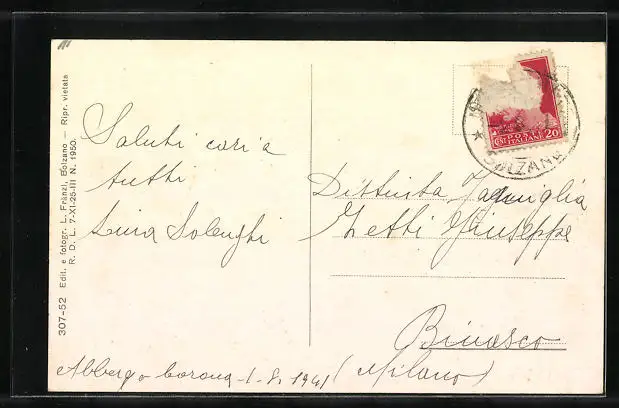 Saluti cari a
tutti
Luisa Solenghi
Albergo Corona - 1-8-1941
307-52 Edit. e fotogr. L. Fränzl, Bolzano — Ripr. vietata
R. D. L. 7-XI-25-III N. 1950.
POSTE
ITALIANE
CENT
20
BOLZANO
Distinta Famiglia
Zetti Giuseppe
Binasco
(Milano)